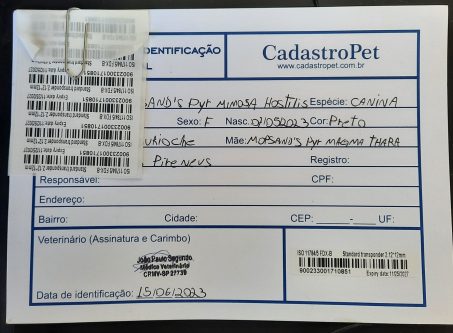 ISO 11784/5 FDX-B
Standard transponder 2.12*12mm
900233001710851
Expiry date 11/05/2027
IDENTIFICAÇÃO
AL
CadastroPet
www.cadastropet.com.br
SAND'S Pyr MIMOSA HOSTILIS Espécie: CANINA
Sexo: F Nasc. 02/05/2023 Cor: Preto
Mãe: MOPSAND'S Pyr MAGMA THARA
Pireneus Registro:
Responsável: CPF:
Endereço:
Bairro: Cidade: CEP: UF:
Veterinário (Assinatura e Carimbo)
João Paulo Segundo
Médico Veterinário
CRMV-SP 27739
Data de identificação: 15/06/2023
ISO 11784/5 FDX-B Standard transponder 2.12*12mm
900233001710851
Expiry date: 11/05/2027